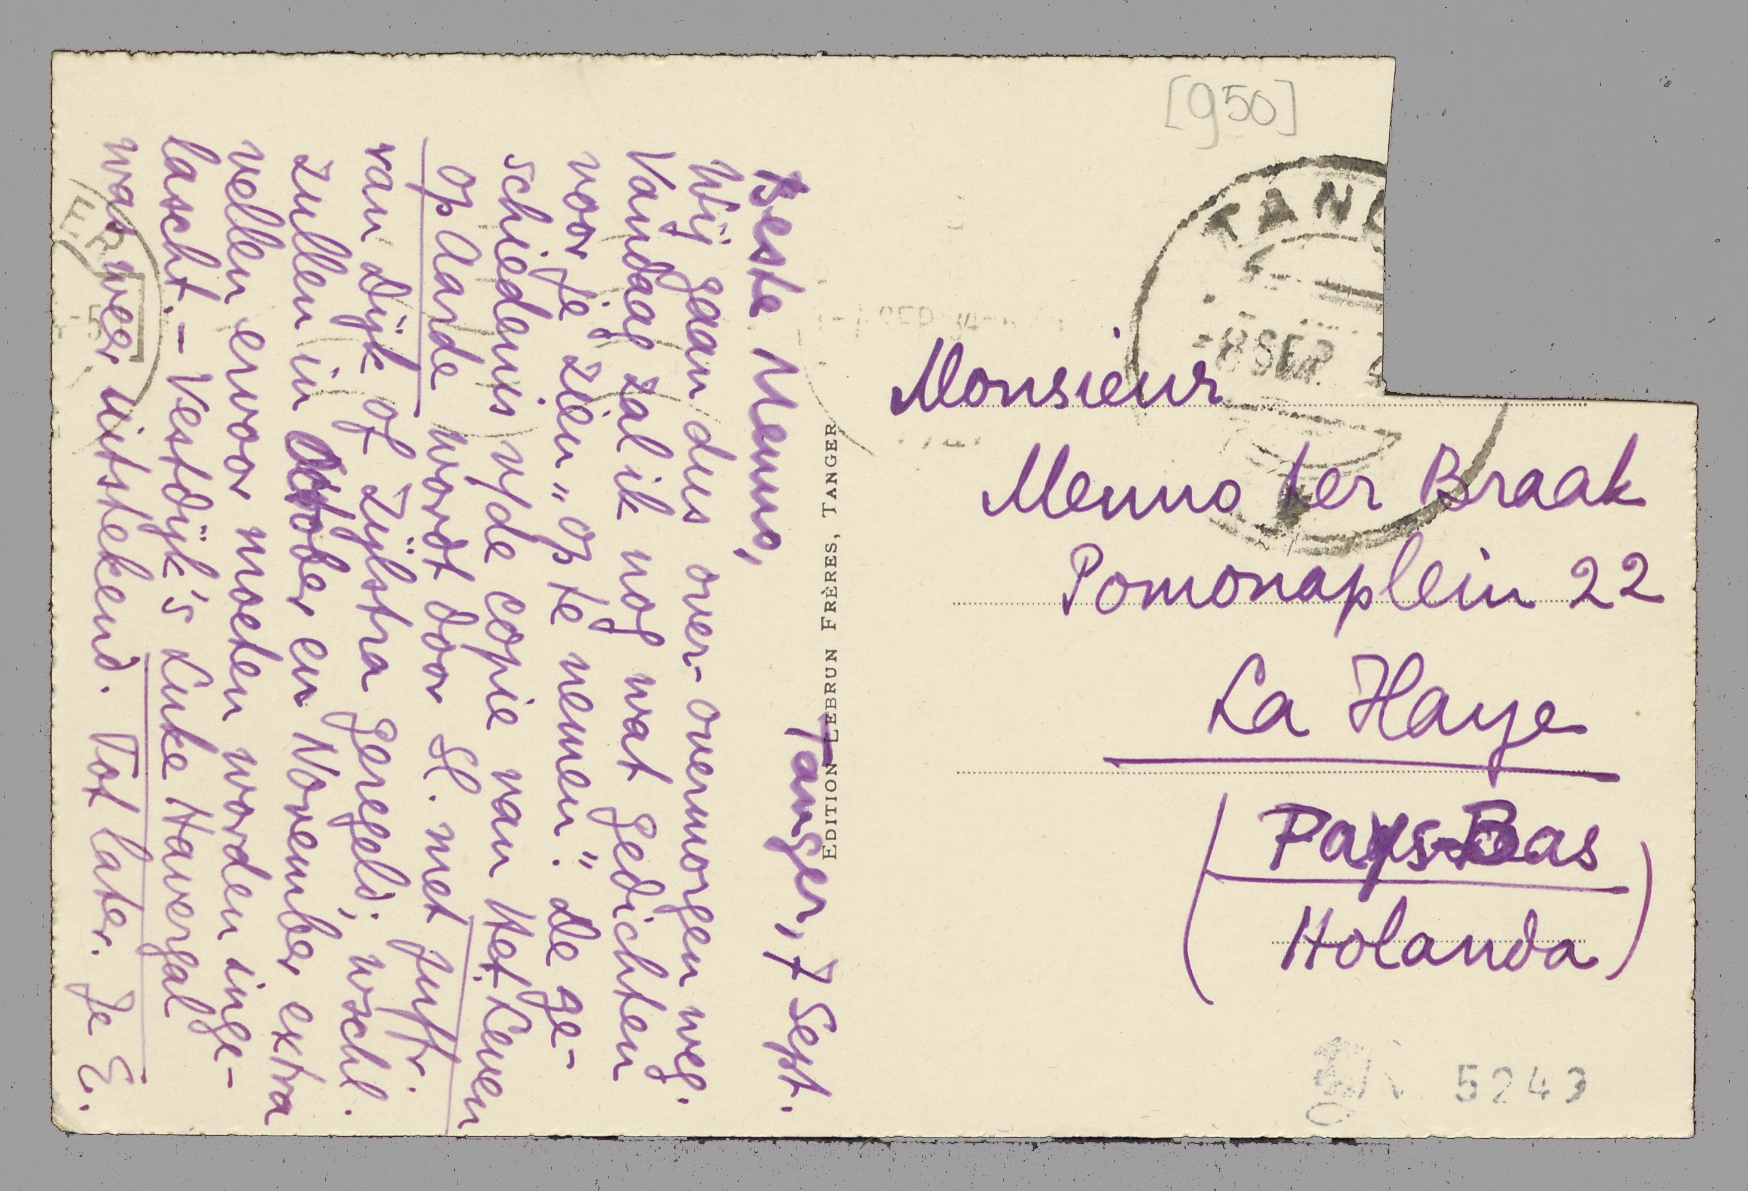 Tanger, 7 Sept.
Beste Menno,
Wij gaan dus over-overmorgen weg.
Vandaag zal ik nog wat gedichten
voor je zien „op te nemen." De ge-
schiedenis v/de copie van Het Leven
op Aarde wordt door Sl. met juffr.
van Dijk of Zijlstra geregeld; wschl.
zullen in October en November extra
vellen ervoor moeten worden inge-
lascht. – Vestdijk's Luke Havergal
was weer uitstekend. Tot later. Je E.
EDITION LEBRUN FRÈRES, TANGER
[950]
TANG
-8 SEP
Monsieur
Menno ter Braak
Pomonaplein 22
La Haye
(Pays-Bas
Holanda)
5243
ER